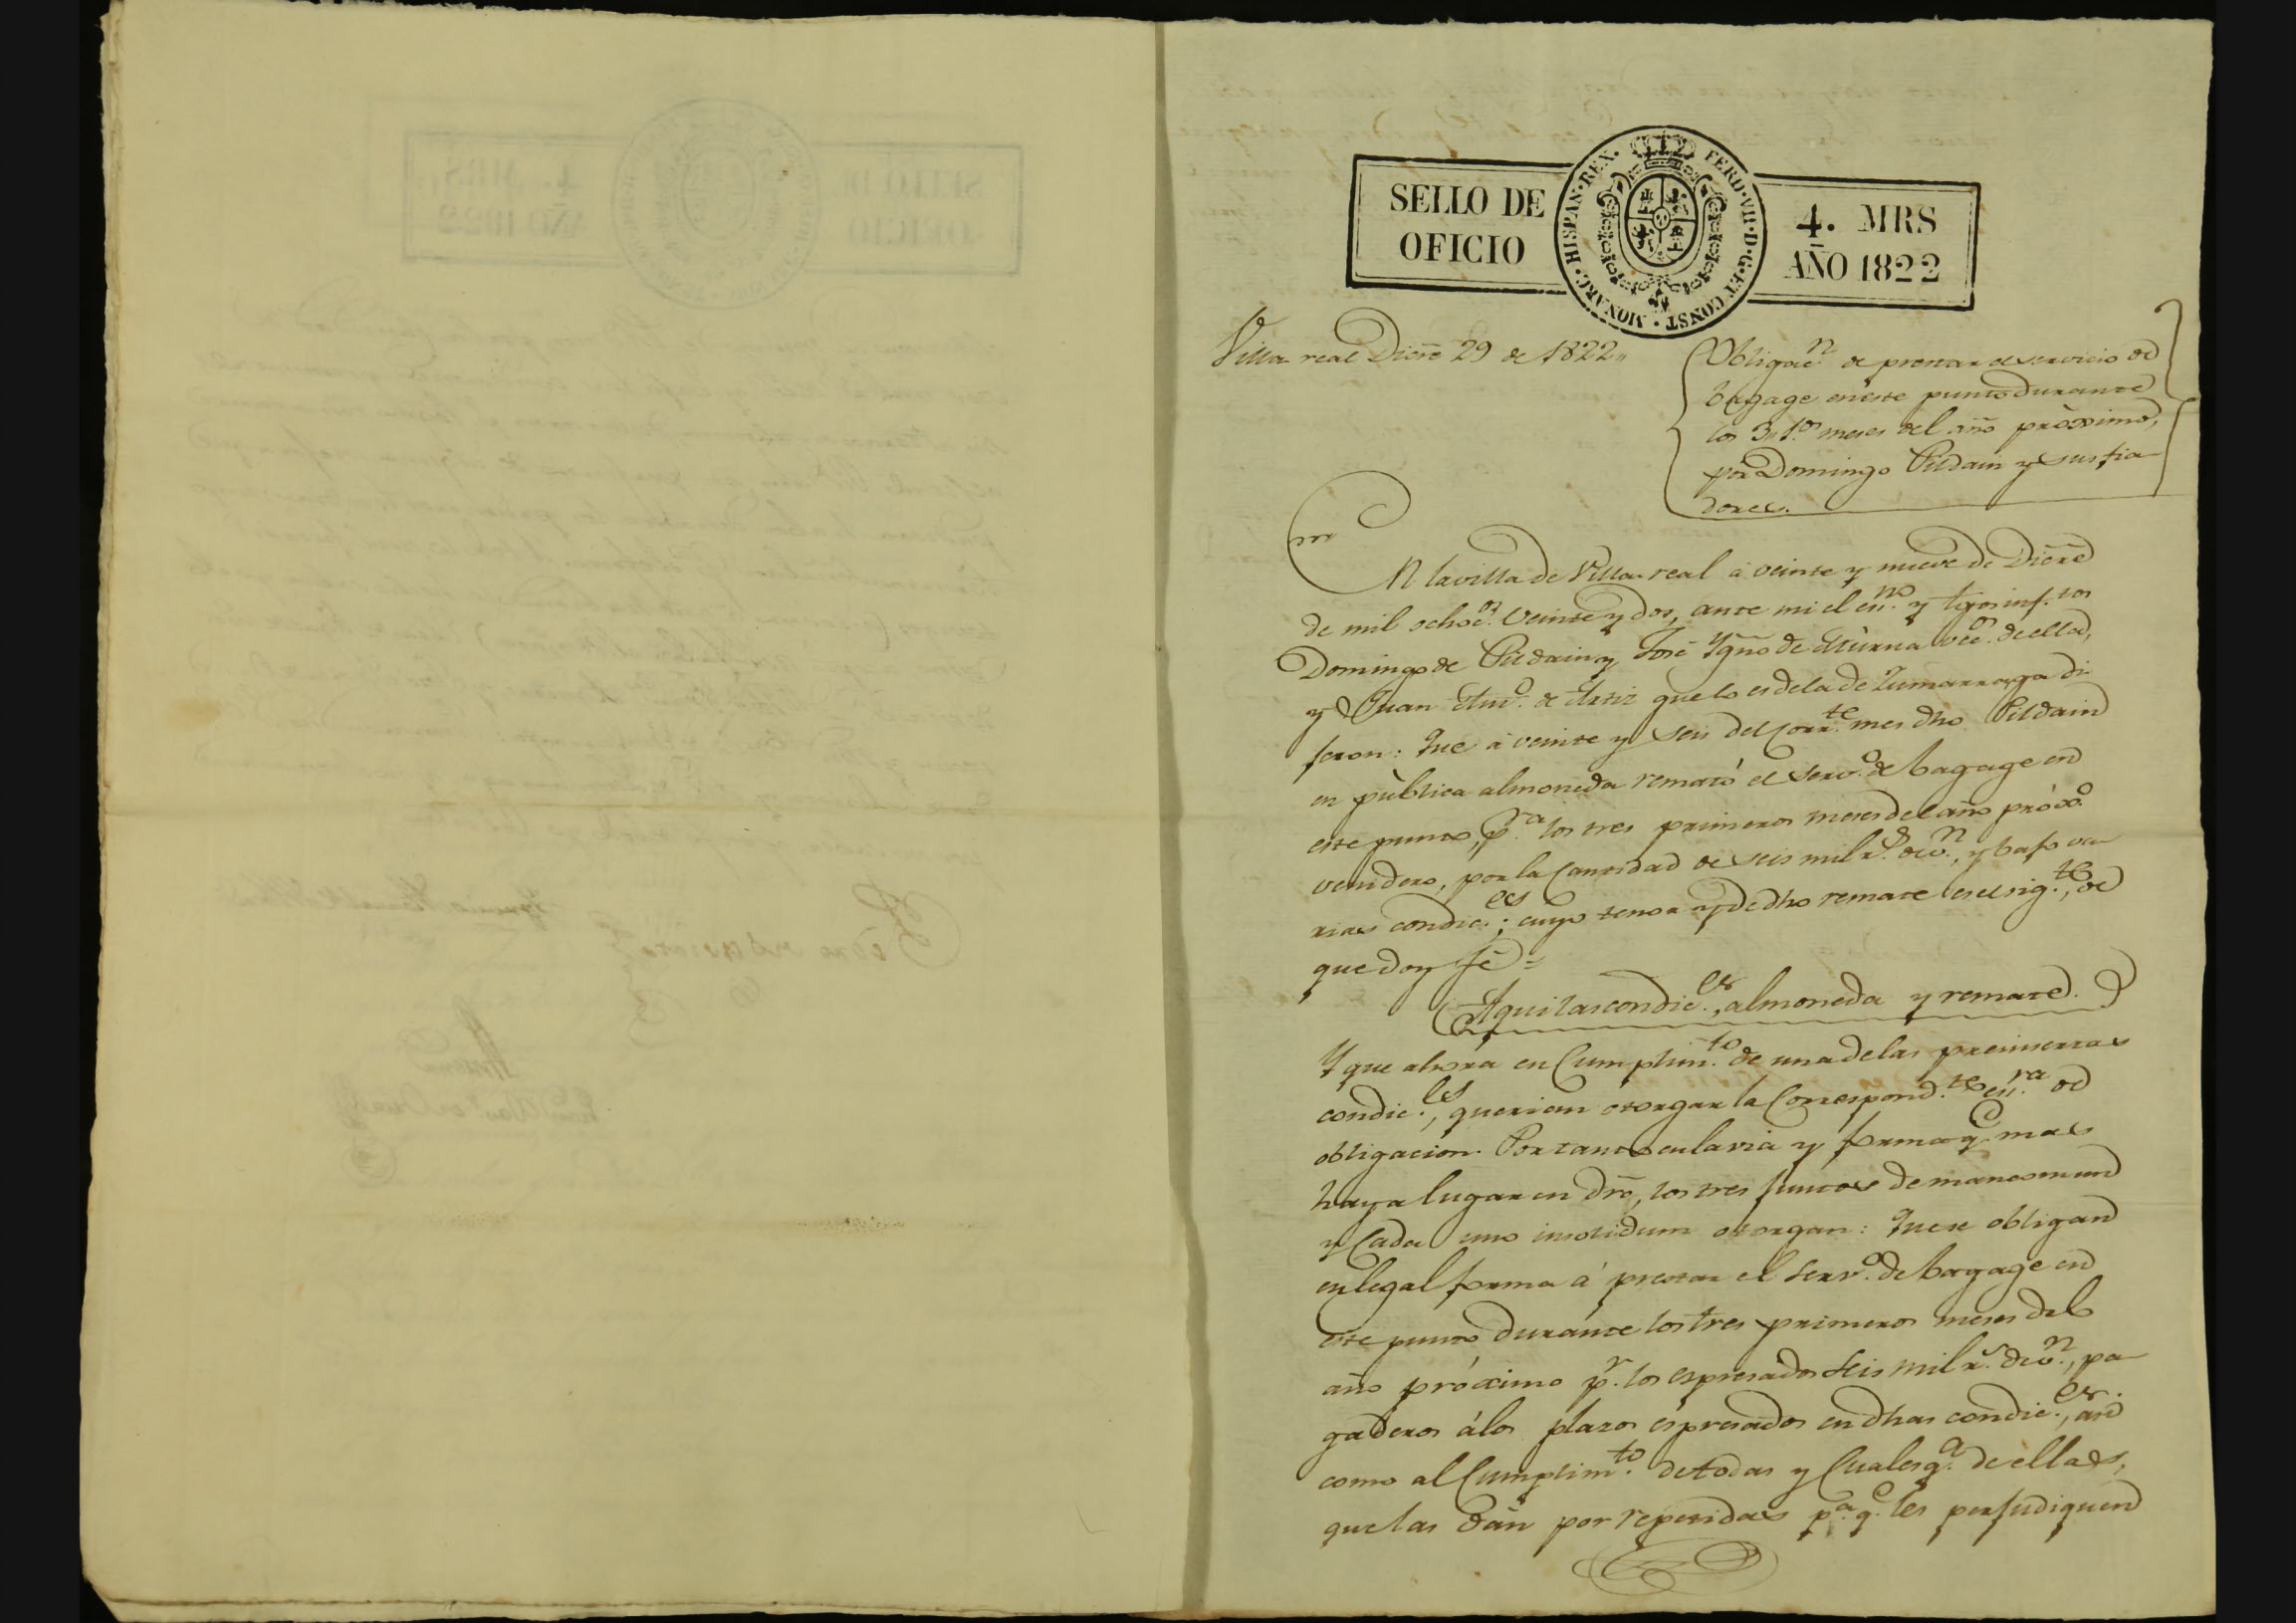 SELLO DE
OFICIO
HISPAN. REX. FERD. VII. D. G. ET CONST. MONARC.
4. MRS
AÑO 1822
Villa real Dicre 29 de 1822
Obligacn. de prestar el servicio de
bagage en este punto durante
los 3 1.os meses del año próximo,
por Domingo Pildain y sus fia-
dores.
En la villa de Villa real á veinte y nueve de Dicre
de mil ochocs. veinte y dos, ante mi el esno. y tgos infros
Domingo de Pildain y José Ygno de vecs. de ella,
y Juan Anto. de que lo es de la de Zumarraga di-
jeron: Que á veinte y seis del corrte. mes dho Pildain
en pública almoneda remató el servo. de bagage en
este punto, pra los tres primeros meses del año próxo.
venidero, por la cantidad de seis mil rs. de vn., y bajo va-
rias condices.; cuyo tenor y de dho remate es el sigte., de
que doy fé =
Aqui las condices., almoneda y remate.
Y que ahora en cumplimto. de una de las preinsertas
condices., querian otorgar la correspondte. esra. de
obligacion. Por tanto en la via y forma qe. mas
haya lugar en dro, los tres juntos de mancomun
y cada uno insolidum otorgan: Que se obligan
en legal forma á prestar el servo. de bagage en
este punto durante los tres primeros meses del
año próximo pr. los espresados seis mil rs. de vn., pa-
gaderos á los plazos espresados en dhas condices., asi
como al cumplimto. de todas y cualesqa. de ellas,
que las dan por repetidas pa. qe. les perjudiquen